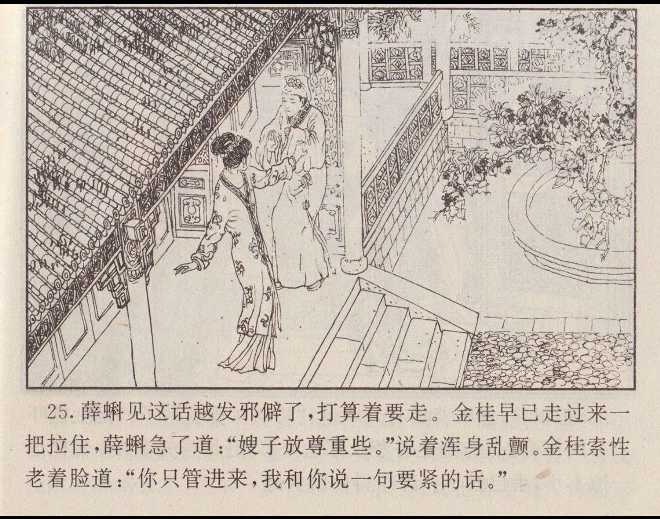 25. 薛蝌见这话越发邪僻了，打算着要走。金桂早已走过来一
把拉住，薛蝌急了道：“嫂子放尊重些。”说着浑身乱颤。金桂索性
老着脸道：“你只管进来，我和你说一句要紧的话。”